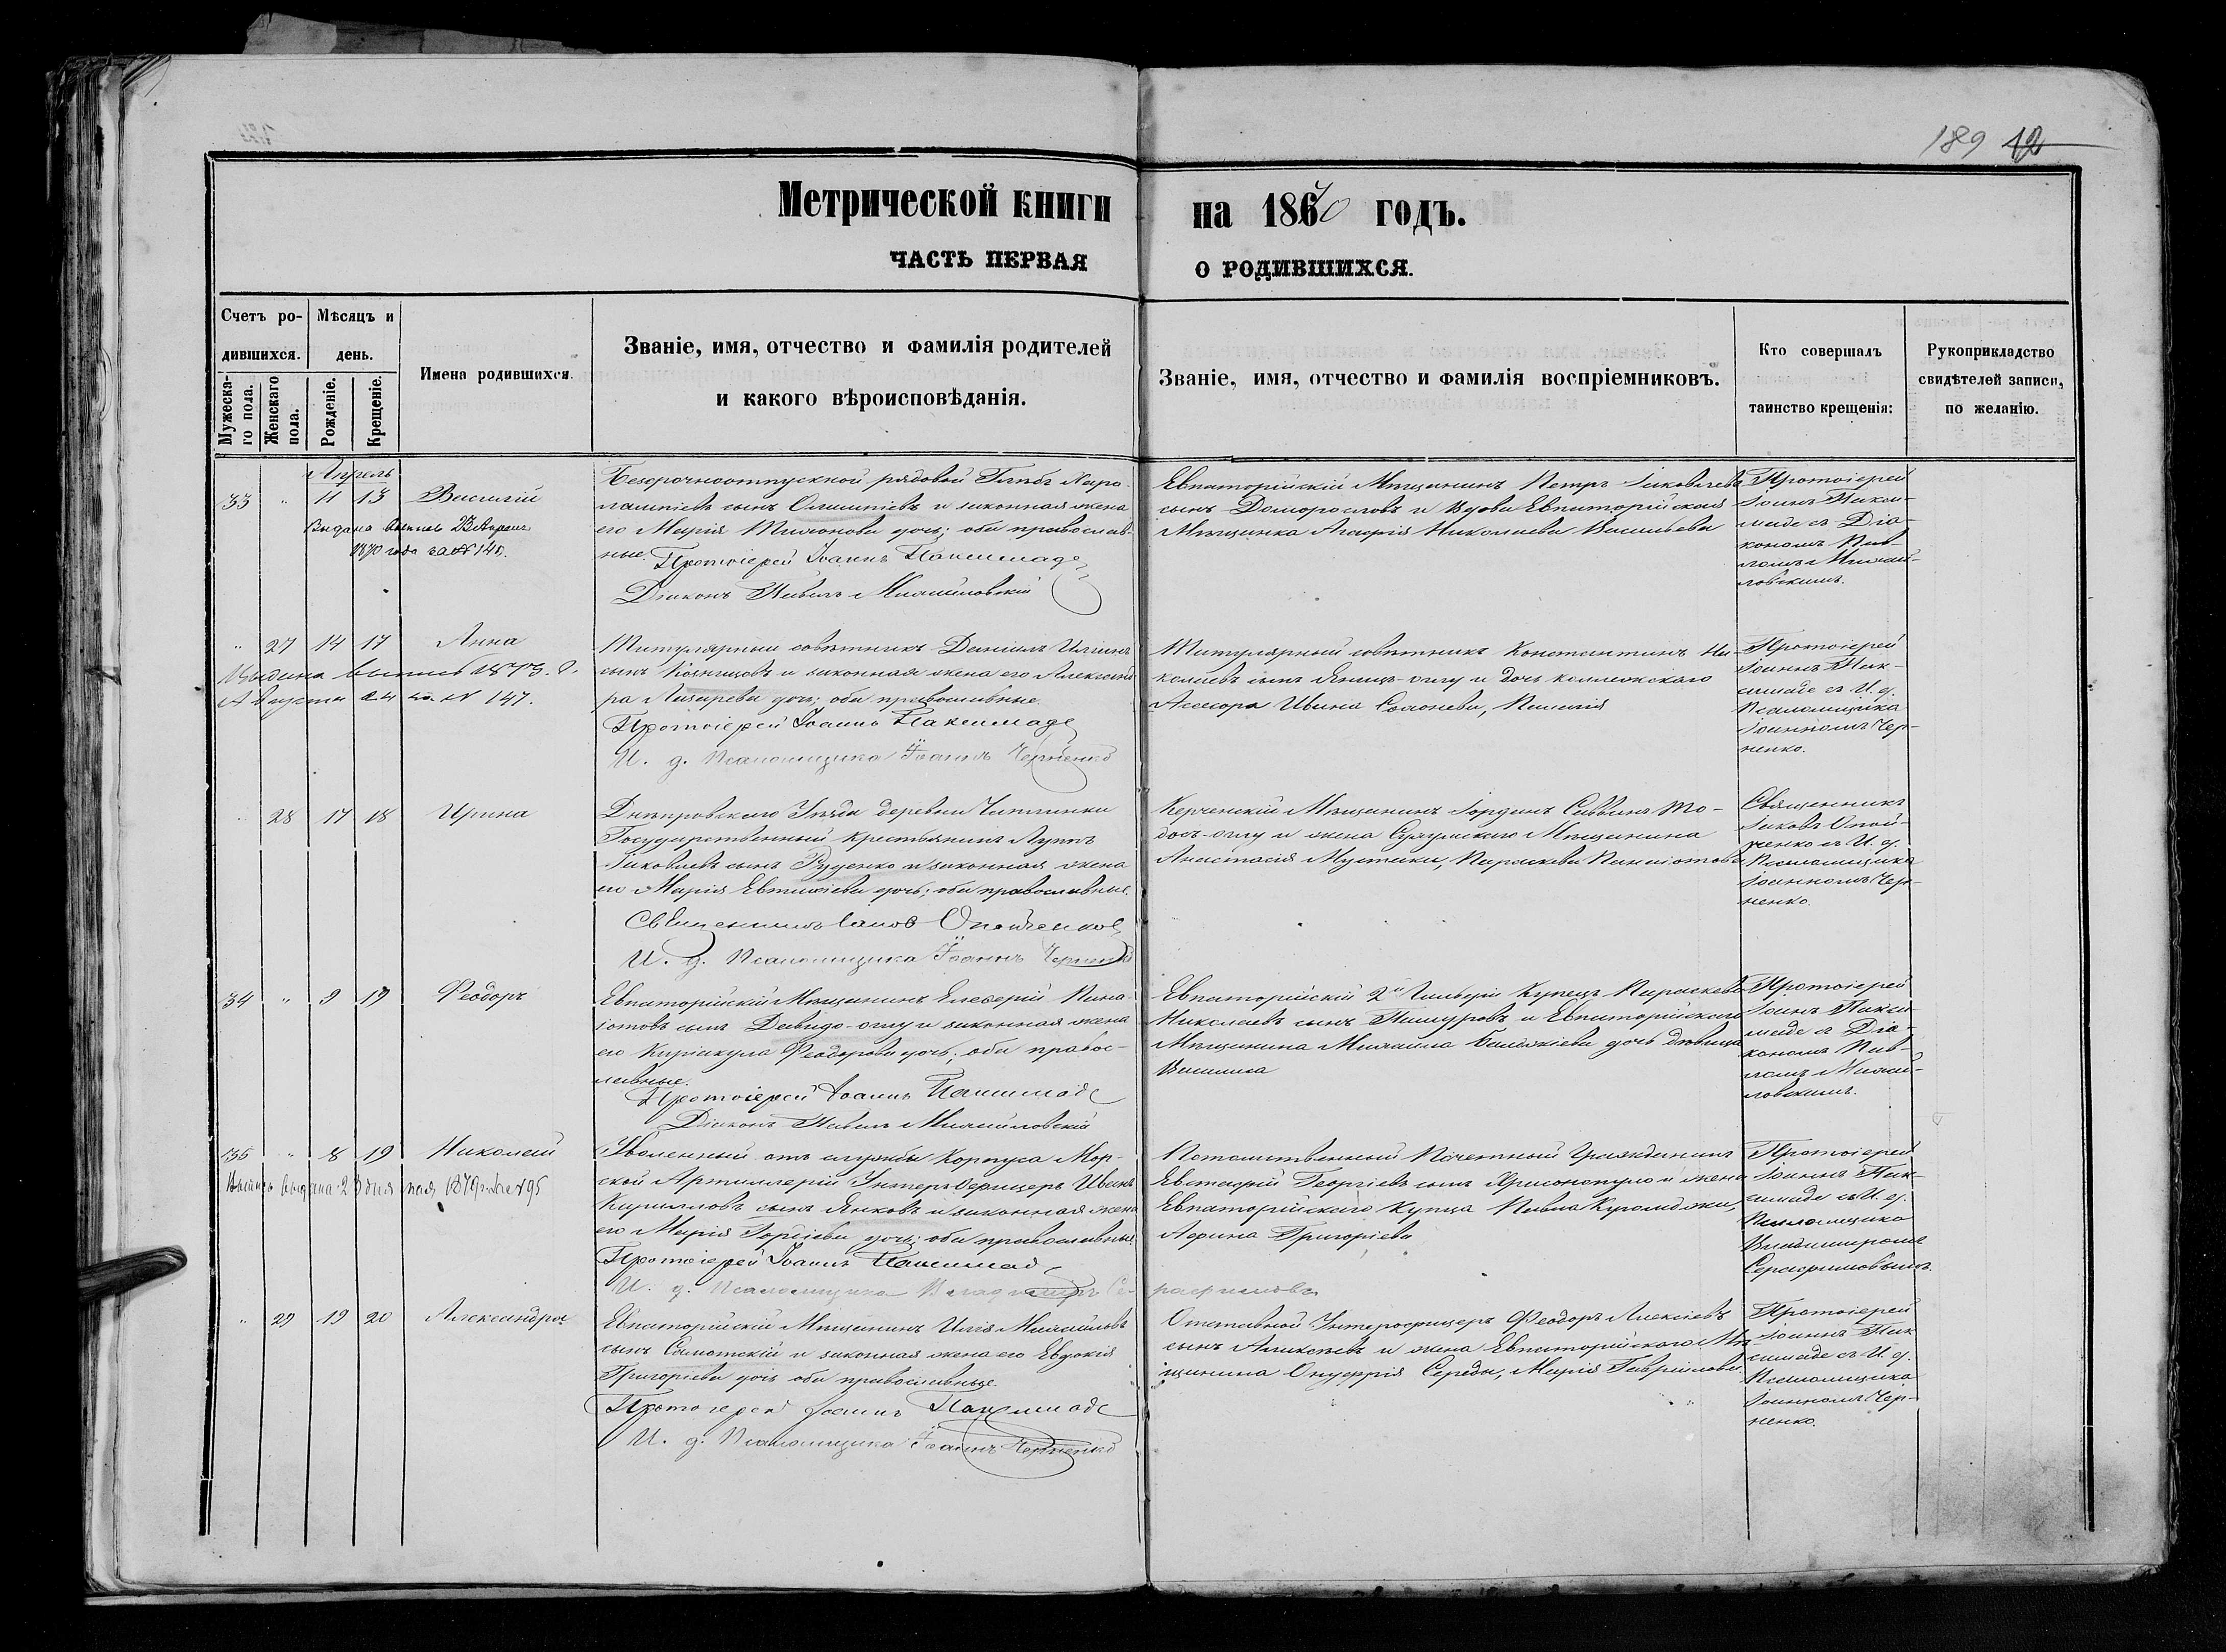 189 12
Метрической книги на 1870 годъ.
ЧАСТЬ ПЕРВАЯ О РОДИВШИХСЯ.
Счетъ ро-
дившихся.
Мужеска-
го пола.
Женскаго
пола.
Мѣсяцъ и
день.
Рожденіе.
Крещеніе.
Имена родившихся.
Званіе, имя, отчество и фамилія родителей
и какого вѣроисповѣданія.
Званіе, имя, отчество и фамилія воспріемниковъ.
Кто совершалъ
таинство крещенія:
Рукоприкладство
свидѣтелей записи,
по желанію.
Апрель
33 " 11 13 Василій
Выдана выпись 23 Апреля
1870 года за № 140.
Безсрочноотпускной рядовой Глѣбъ Хара-
лампіевъ сынъ и законная жена
его Марія дочь; оба православ-
ные. Протоіерей Іоаннъ Паксимаде
Діаконъ Павелъ Михайловскій
Евпаторійскій Мѣщанинъ Петръ Іаковлевъ
сынъ Доморословъ и Вдова Евпаторійская
Мѣщанка Агафія Николаева Васильева
Протоіерей
Іоаннъ Пакси-
маде съ Діа-
кономъ Пав-
ломъ Михай-
ловскимъ.
" 27 14 17 Анна
Выдана выпись 1873. г.
Августа 24 за № 147.
Титулярный совѣтникъ Даніилъ Иліинъ
сынъ и законная жена его Александ-
ра Лазарева дочь; оба православные.
Протоіерей Іоаннъ Паксимаде
И. д. Псаломщика Іоаннъ Черненко
Титулярный совѣтникъ Константинъ Ни-
колаевъ сынъ и дочь коллежскаго
Асесора Ивана
Протоіерей
Іоаннъ Пак-
симаде съ И. д.
Псаломщика
Іоанномъ Чер-
ненко.
28 17 18 Ирина
Днепровскаго Уѣзда деревни Чаплинки
Государственный крестьянинъ Лукъ
Іаковлевъ сынъ и законная жена
его Марія Евтихіева дочь; оба православные.
Священникъ Іаковъ Опойченко
И. д. Псаломщика Іоаннъ Черненко
Керченскій Мѣщанинъ Іорданъ Саввинъ То-
досъ-оглу и жена Мѣщанина
Анастасія Параскева Панаіотова
Священникъ
Іаковъ Опой-
ченко съ И. д.
Псаломщика
Іоанномъ Чер-
ненко.
34 " 9 19 Феодоръ
Евпаторійскій Мѣщанинъ Елевѳерій Пана-
іотовъ сынъ Давидо-оглу и законная жена
его Киріакула Феодорова дочь; оба правос-
лавные.
Протоіерей Іоаннъ Паксимаде
Діаконъ Павелъ Михайловскій
Евпаторійскій 2й Гильдіи Купецъ Параскева
Николаевъ сынъ и Евпаторійскаго
Мѣщанина Михаила дочь дѣвица
Василиса
Протоіерей
Іоаннъ Пакси-
маде съ Діа-
кономъ Пав-
ломъ Михай-
ловскимъ.
35 " 8 19 Николай
Выпись выдана 23 дня мая 1879 г. за № 95
Уволенный отъ службы Корпуса Мор-
ской Артиллеріи Унтеръ Офицеръ Иванъ
Кирилловъ сынъ Янковъ и законная жена
его Марія дочь; оба православные.
Протоіерей Іоаннъ Паксимаде
И. д. Псаломщика Владиміръ Се-
рафимовъ
Потомственный Почетный Гражданинъ
Евстафій Георгіевъ сынъ и жена
Евпаторійскаго Купца Павла
Григоріева
Протоіерей
Іоаннъ Пак-
симаде съ И. д.
Псаломщика
Владиміромъ
Серафимовымъ.
" 29 19 20 Александра
Евпаторійскій Мѣщанинъ Илія Михайловъ
сынъ и законная жена его Евдокія
Григоріева дочь оба православные.
Протоіерей Іоаннъ Паксимаде
И. д. Псаломщика Іоаннъ Черненко
Отставной Унтерофицеръ Феодоръ Алексіевъ
сынъ Алексѣевъ и жена Евпаторійскаго Мѣ-
щанина Онуфрія Середы, Марія Гавріилова
Протоіерей
Іоаннъ Пак-
симаде съ И. д.
Псаломщика
Іоанномъ Чер-
ненко.